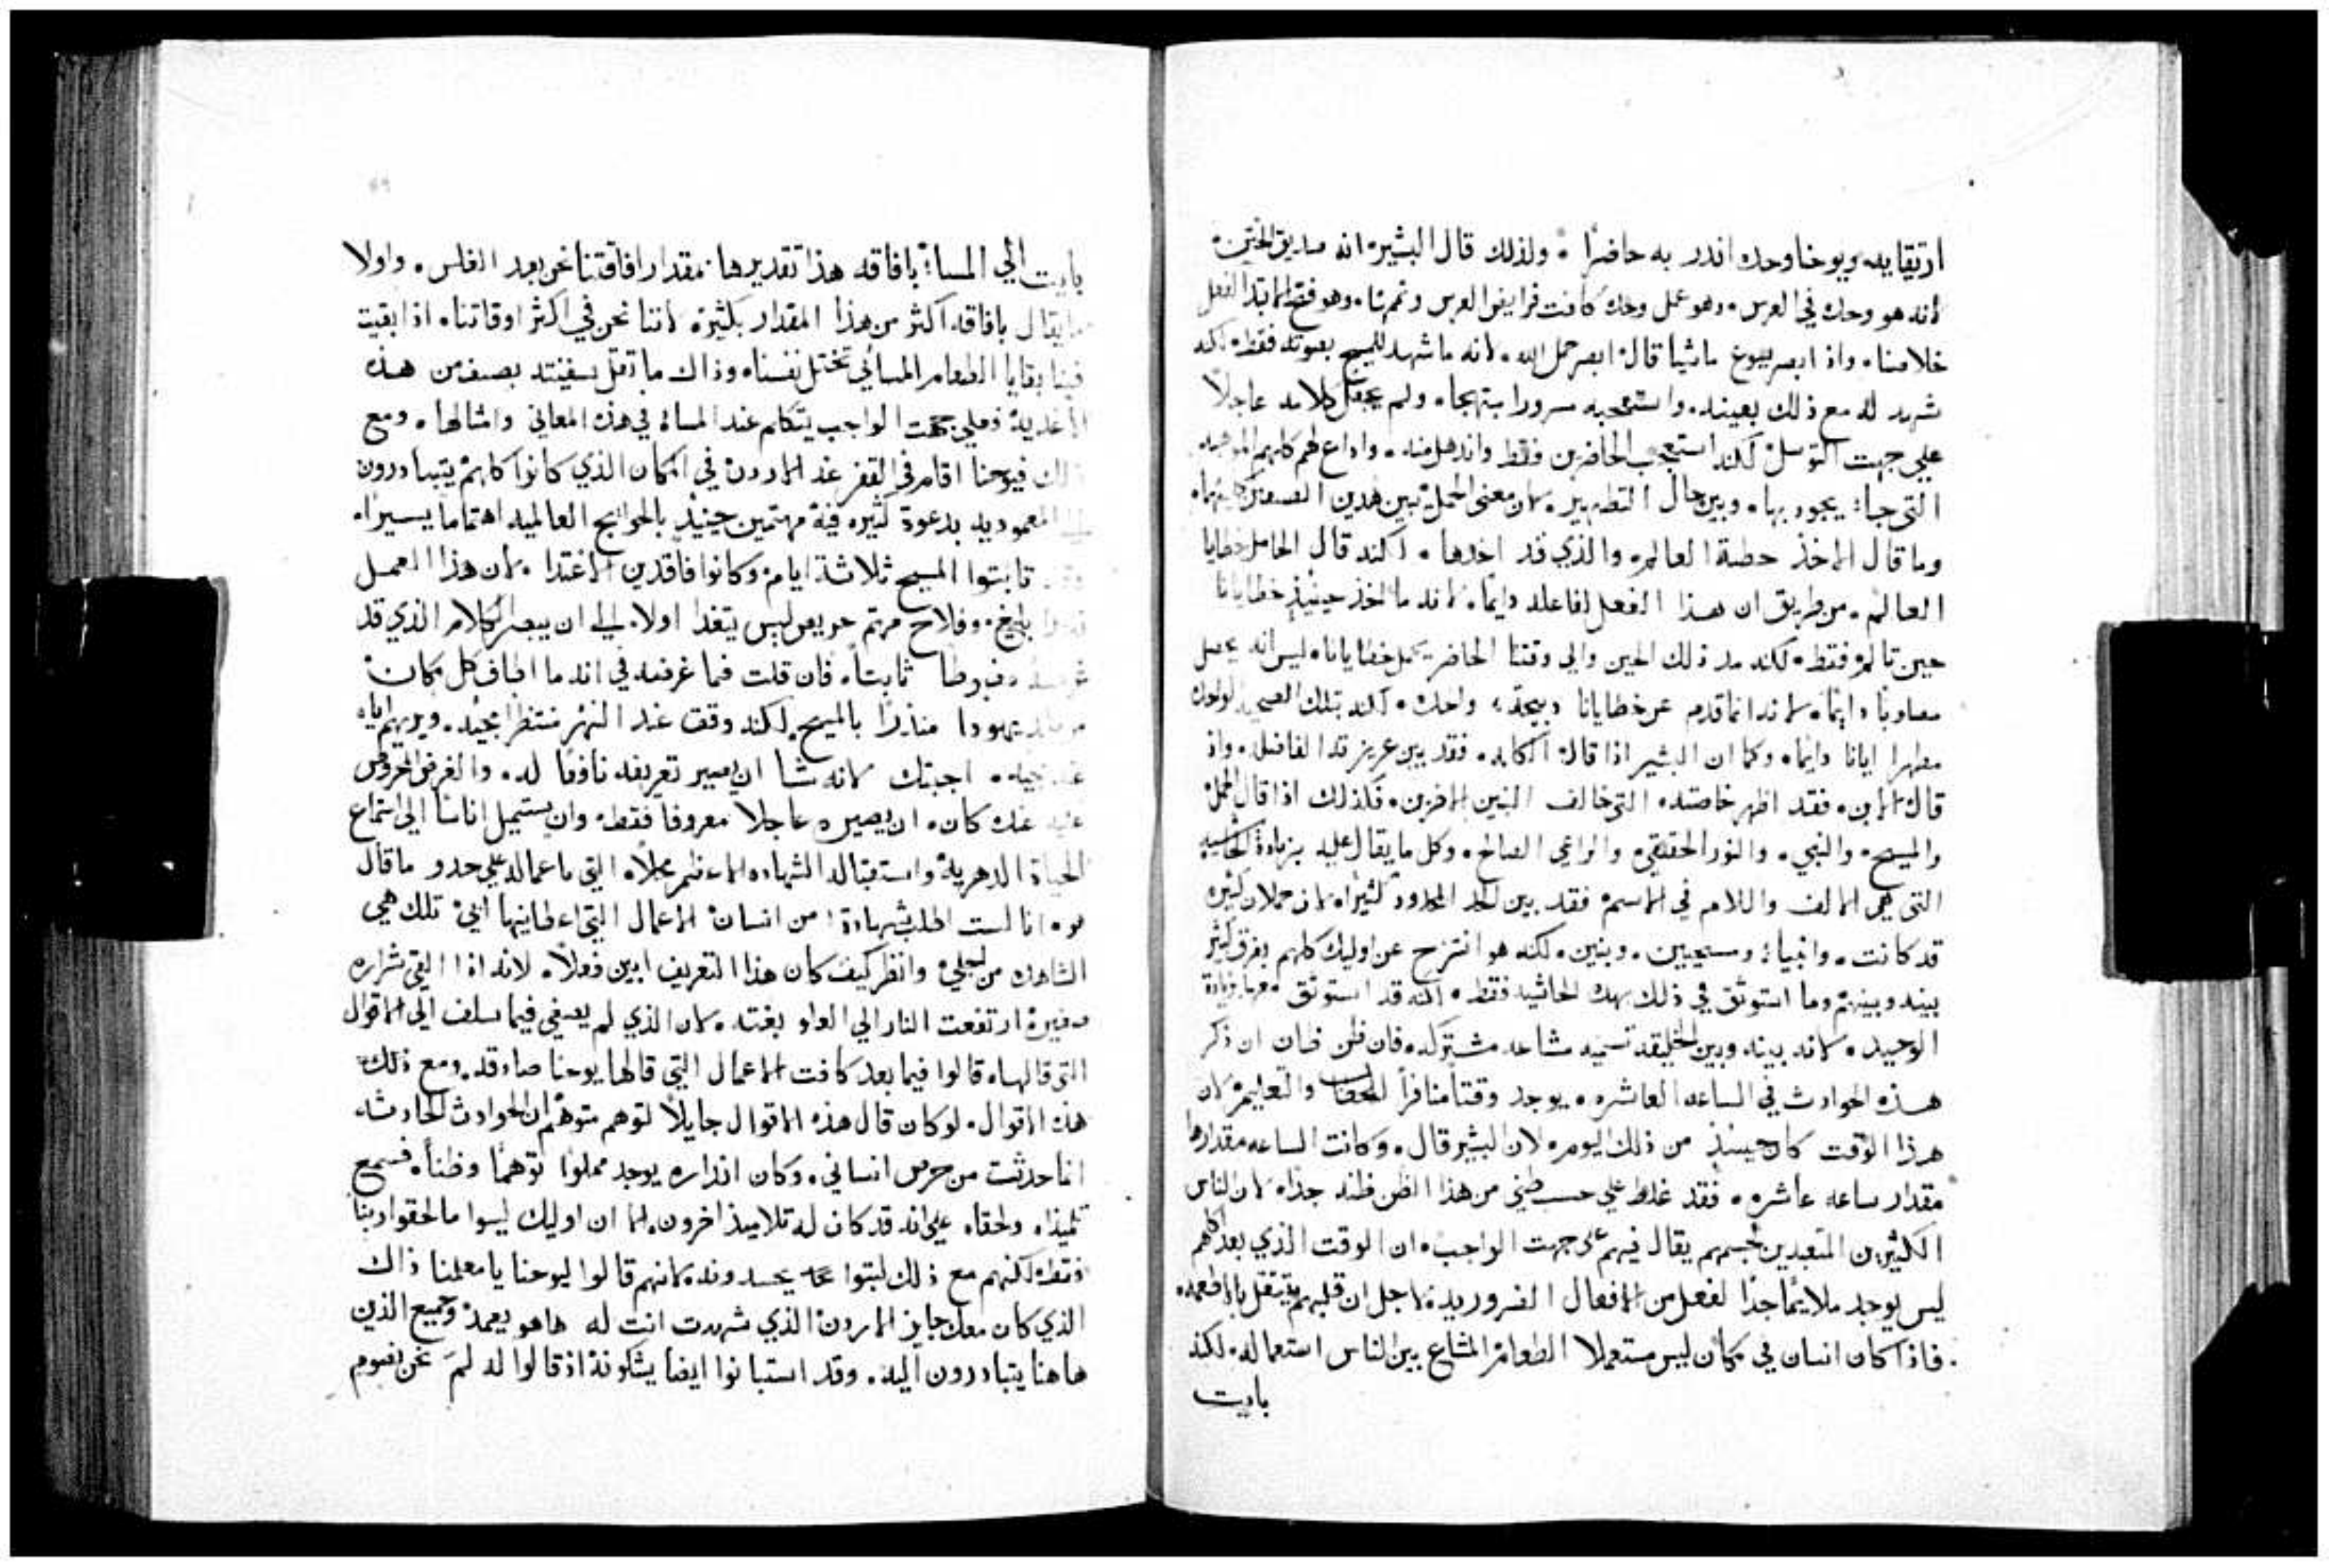 ارتقايه ويوحنا وحده اندر به حاضرًا ۰ ولذلك قال البشير۰ انه صديق الختن۰
لانه هو وحده في العرس۰ وهو عمل وحده كافت فرايض العرس وتممها۰ وهو فقط ابتدا لفعل
خلاصنا۰ واذ ابصر يسوع ماشيا قال۰ ابصر حمل الله۰ لانه ما شهد للمسيح بصوته فقط۰ لكنه
شهد له مع ذلك بعينه۰ واستعجبه سرورا مبتهجا۰ ولم يجعل كلامه عاجلاً
علي جهت التوسل۰ لكنه استعجب الحاضرين فقط واندهل منه۰ واداع لهم كلهم الموهبه
التي جا: يجود بها۰ وبين حال التطهير۰ لان معني الحمل۰ يبين هدين الصنفين كليهما۰
وما قال الاخذ خطية العالم۰ والذي قد اخدها۰ لكنه قال الحامل خطايا
العالم۰ من طريق ان هذا الفعل افاعله دايما۰ لانه ما اخذ حينيذٍ خطايانا
حين تالم۰ فقط۰ لكنه مد ذلك الحين والي وقتنا الحاضر يحمل خطايانا۰ ليس انه يصل
مصلوبا دايما۰ لانه انما قدم عن خطايانا دبيحة۰ واحده۰ لكنه بتلك الدبيحه الواحده
مطهرا ايانا دايما۰ وكما ان البشير اذا قال۰ الكلمه۰ فقد بين عزيز قد الفاضله۰ واذ
قال الابن۰ فقد اظهر خاصته۰ التي خالف البنين الاخرين۰ فكذلك اذا قال الحمل۰
والمسيح۰ والنبي۰ والنور الحقيقي۰ والراعي الصالح۰ وكل ما يقال عليه بزيادة الحاشيه
التي هي الالف واللام في الاسم۰ فقد بين الحد المحدود كثيرا۰ لان حملان كثيره
قد كانت۰ وانبياء ومسيحيين۰ وبنين۰ لكنه هو انتزح عن اوليك كلهم بفرق كثير
بينه وبينهم وما استوثق في ذلك بهده الحاشيه فقط۰ لكنه قد استوثق معها بزيادة
الوحيد۰ لانه بينه وبين الخليقه تسميه مشاعه مشتركه۰ فان ظن ظان ان ذكر
هذه الحوادث في الساعه العاشره۰ يوجد وقتًا منافراً للخطاب والتعليم۰ لان
هذا الوقت كان حينيذٍ من ذلك اليوم۰ لان البشير قال۰ وكانت الساعه مقدارها
مقدار ساعه عاشره۰ فقد غلط علي حسب ظني من هذا الظن ظنه جدا۰ لان الناس
الكثيرين المتعبدين لجسمهم يقال فيهم علي جهت الواجب۰ ان الوقت الذي بعد اكلهم
ليس يوجد ملايما جدا لفعل من الافعال الضروريه۰ لاجل ان قلبهم يتثقل بالاطعمه۰
فاذا كان انسان في مكان ليس مستعملا الطعام۰ المشاع بين الناس استعماله۰ لكنه
بايت
بايت الي المساء: بافاقه هذا تقديرها۰ مقدار افاقتنا نحن بعد الغلس۰ واولا
ما يقال بافاقه اكثر من هذا المقدار بكثير۰ لاننا نحن في اكثر اوقاتنا۰ اذا بقيت
فينا بقايا الطعام المسائي تختل نفسنا۰ وذاك ما ثقل سفينته بصنف من هذه
الاغدية۰ فعلي جهت الواجب يتكلم عند المساء في هذه المعاني وامثالها۰ ومع
ذلك فيوحنا اقام في القفر عند الاردن۰ في المكان الذي كانوا كلهم يتبادرون
المعموديه بدعوة كثيره فيه مهتمين حينيذٍ بالحوايج العالميه اهتماما يسيرا۰
ثابتوا المسيح ثلاثة ايام۰ وكانوا فاقدين الاغتدا۰ لان هذا العمل
بليغ۰ وفلاح مهتم حريص ليس يتغدا اولا۰ الي ان يبصر الكلام الذي قد
مضبوطا ثابتا۰ فان قلت فما غرضه في انه ما اطاف كل مكان۰
يهودا منذرًا بالمسيح۰ لكنه وقف عند النهر منتظرا مجيه۰ ويريهم اياه
عند مجيه۰ اجبتك لانه شا ان يصير تعريفه نافعًا له۰ والغرض المحروص
عليه عنده كان۰ ان يصيره عاجلاً معروفاً فقط۰ وان يستميل اناسًا الي استماع
الحياة الدهرية۰ واستبقا له الشهاده الاعظم محلا۰ التي باعماله علي حدو ما قال
هو۰ انا لست اطلب شهادة: من انسان۰ الاعمال التي اعطانيها ابي۰ تلك هي
الشاهده من اجلي۰ وانظر كيف كان هذا التعريف ابين فعلا۰ لانه اذا القي شراره
صغيرة ارتفعت النار الي العلو بغته۰ لان الذي لم يصغي فيما سلف الي الاقوال
التي قالها۰ قالوا فيما بعد كافت الاعمال التي قالها يوحنا صادقه۰ ومع ذلك
هذه الاقوال۰ لو كان قال هذه الاقوال جايلاً لتوهم متوهم۰ ان الحوادث الحادثه
انما حدثت من حرص انساني۰ وكان انداره يوجد مملوًا توهمًا وظناً۰ فسمع
تلميذاه ولحقاه علي انه قد كان له تلاميذ اخرون۰ الا ان اوليك ليسوا ما لحقوا ربنا
فقط۰ لكنهم مع ذلك لبتوا يحسدونه۰ لانهم قالوا ليوحنا يا معلمنا ذاك
الذي كان معك جايز الاردن۰ الذي شهدت انت له هاهو يعمد۰ وجميع الذين
هاهنا يتبادرون اليه۰ وقد استبانوا ايضا يشكونه اذ قالوا له لم نحن نصوم